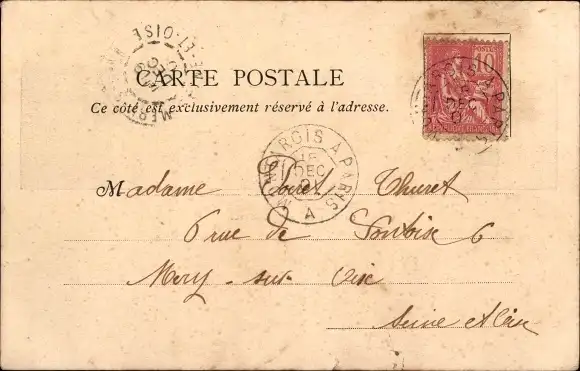 CARTE POSTALE
Ce côté est exclusivement réservé à l'adresse.
POSTES
10
MONTARGIS A PARIS
15
DEC
A
Madame Thuret
6 rue de Pontoise 6
Mery-sur-Oise
Seine et Oise